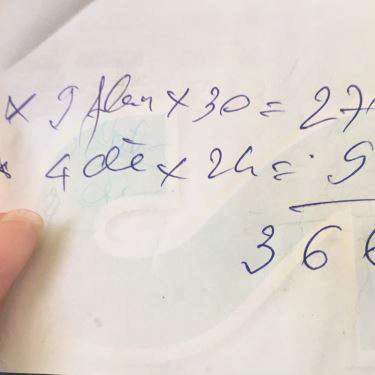 × 9 flan × 30 = 27
× 4 dè × 24 = 9
366